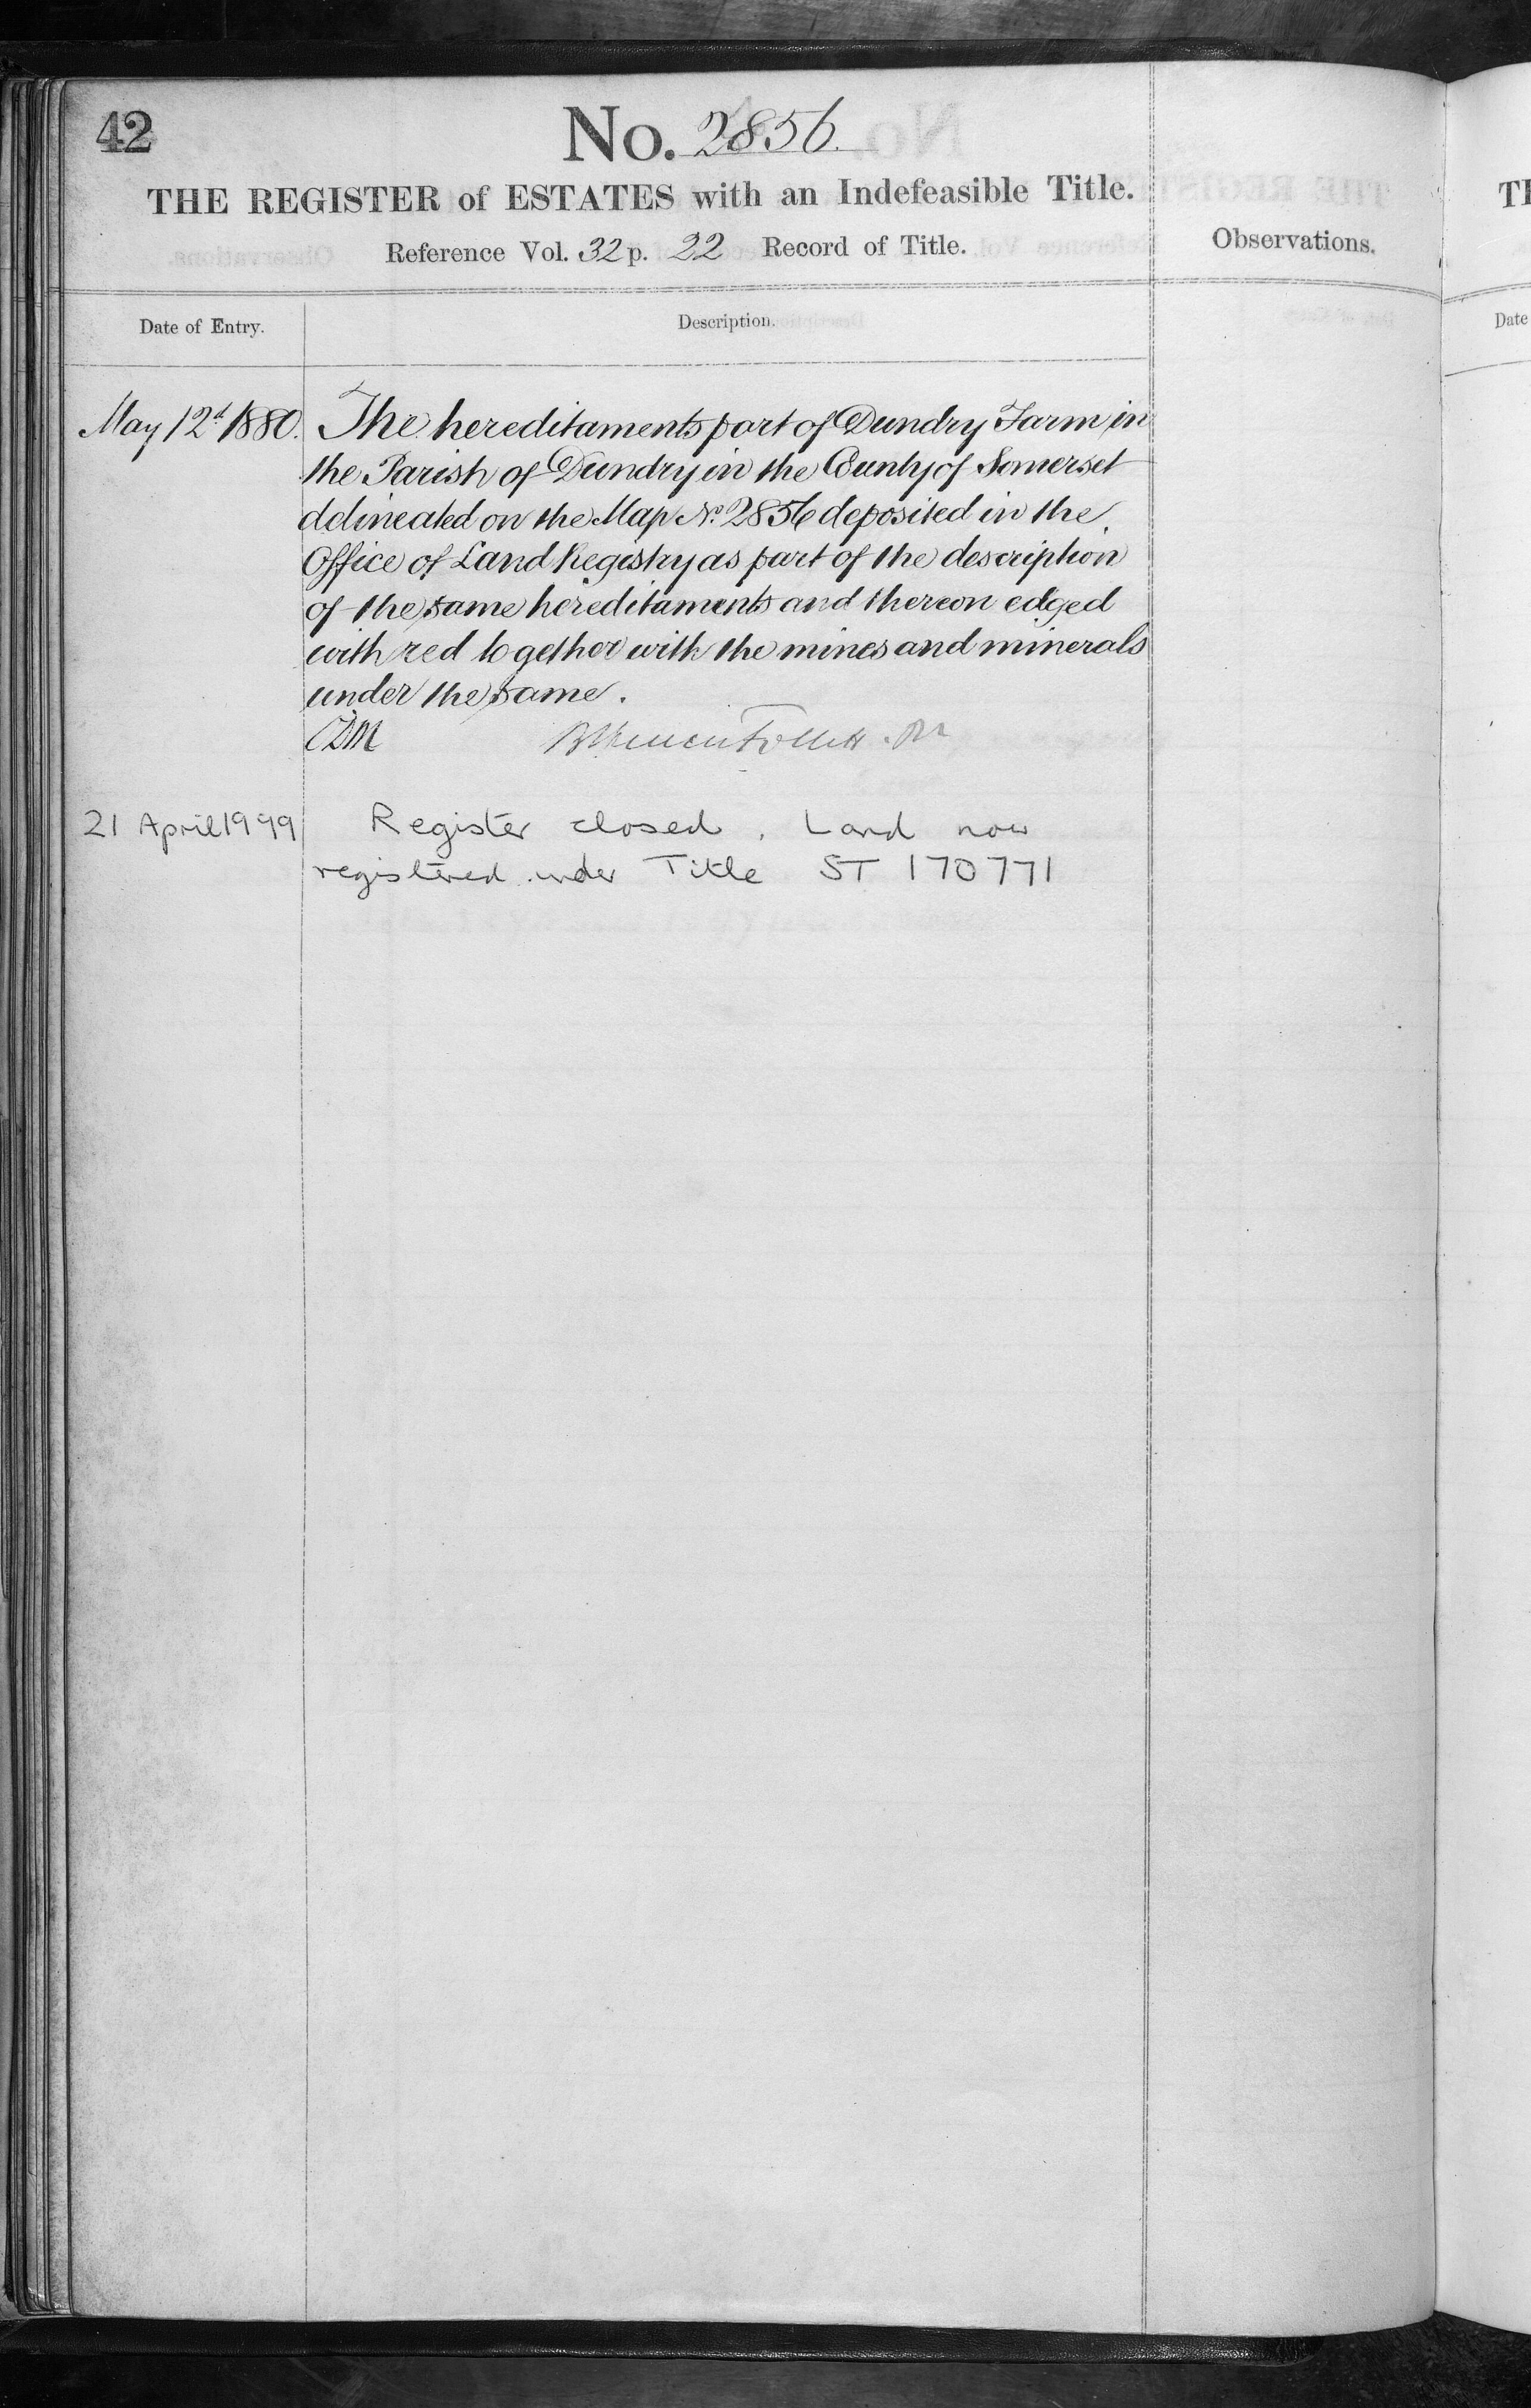 42
No. 2856.
THE REGISTER of ESTATES with an Indefeasible Title.
Reference Vol. 32 p. 22 Record of Title.
Observations.
Date of Entry.
Description.
May 12th 1880. The hereditaments part of Dundry Farm in
the Parish of Dundry in the County of Somerset
delineated on the Map No. 2856 deposited in the
Office of Land Registry as part of the description
of the same hereditaments and thereon edged
with red together with the mines and minerals
under the same.
Follett
21 April 1999 Register closed. Land now
registered under Title ST 170771
Date